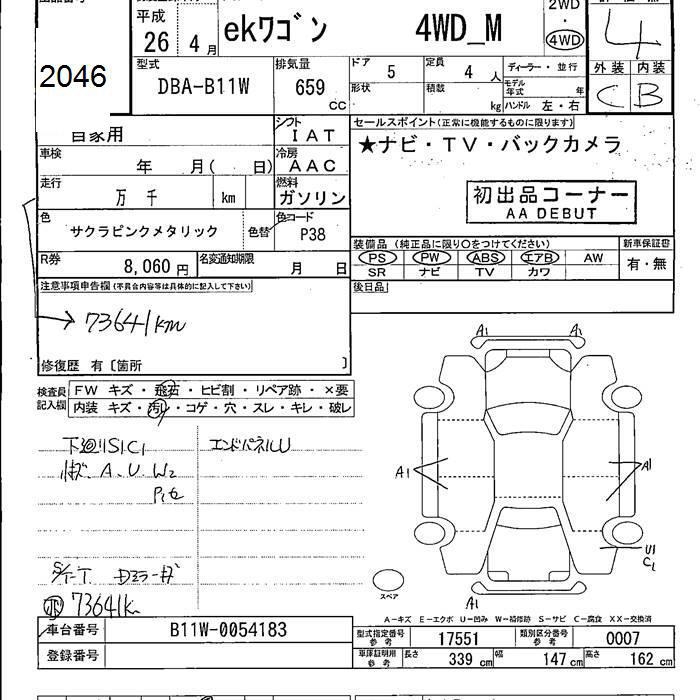 平成
26 4月
ekワゴン
4WD_M
2WD
・
4WD
4
2046
型式
DBA-B11W
排気量
659
CC
ドア
5
定員
4 人
形状
積載
kg
ディーラー・並行
モデル年式
年
ハンドル 左・右
外装 内装
C B
自家用
シフト
IAT
車検
年 月( 日)
冷房
AAC
走行
万 千 km
燃料
ガソリン
色
サクラピンクメタリック
色替
色コード
P38
R券
8,060円
名変通知期限
月 日
セールスポイント(正常に機能するものに限ります)
★ナビ・TV・バックカメラ
初出品コーナー
AA DEBUT
装備品 (純正品に限り○をつけてください)
新車保証書
PS PW ABS エアB AW
SR ナビ TV カワ
有・無
後日品
注意事項申告欄(不具合内容等は具体的に記入して下さい)
→73641km
修復歴 有〔箇所 〕
検査員
記入欄
FW キズ・飛石・ヒビ割・リペア跡・×要
内装 キズ・汚れ・コゲ・穴・スレ・キレ・破レ
下廻りS1C1
エンドパネルU
小キズ A、U W2
73641km
A1
A1
A1
A1
U1
C1
A1
スペア
A-キズ E-エクボ U-凹み W-補修跡 S-サビ C-腐食 XX-交換済
車台番号
B11W-0054183
登録番号
型式指定番号
参考
17551
類別区分番号
参考
0007
車庫証明用
参考
長さ
339 cm
幅
147 cm
高さ
162 cm